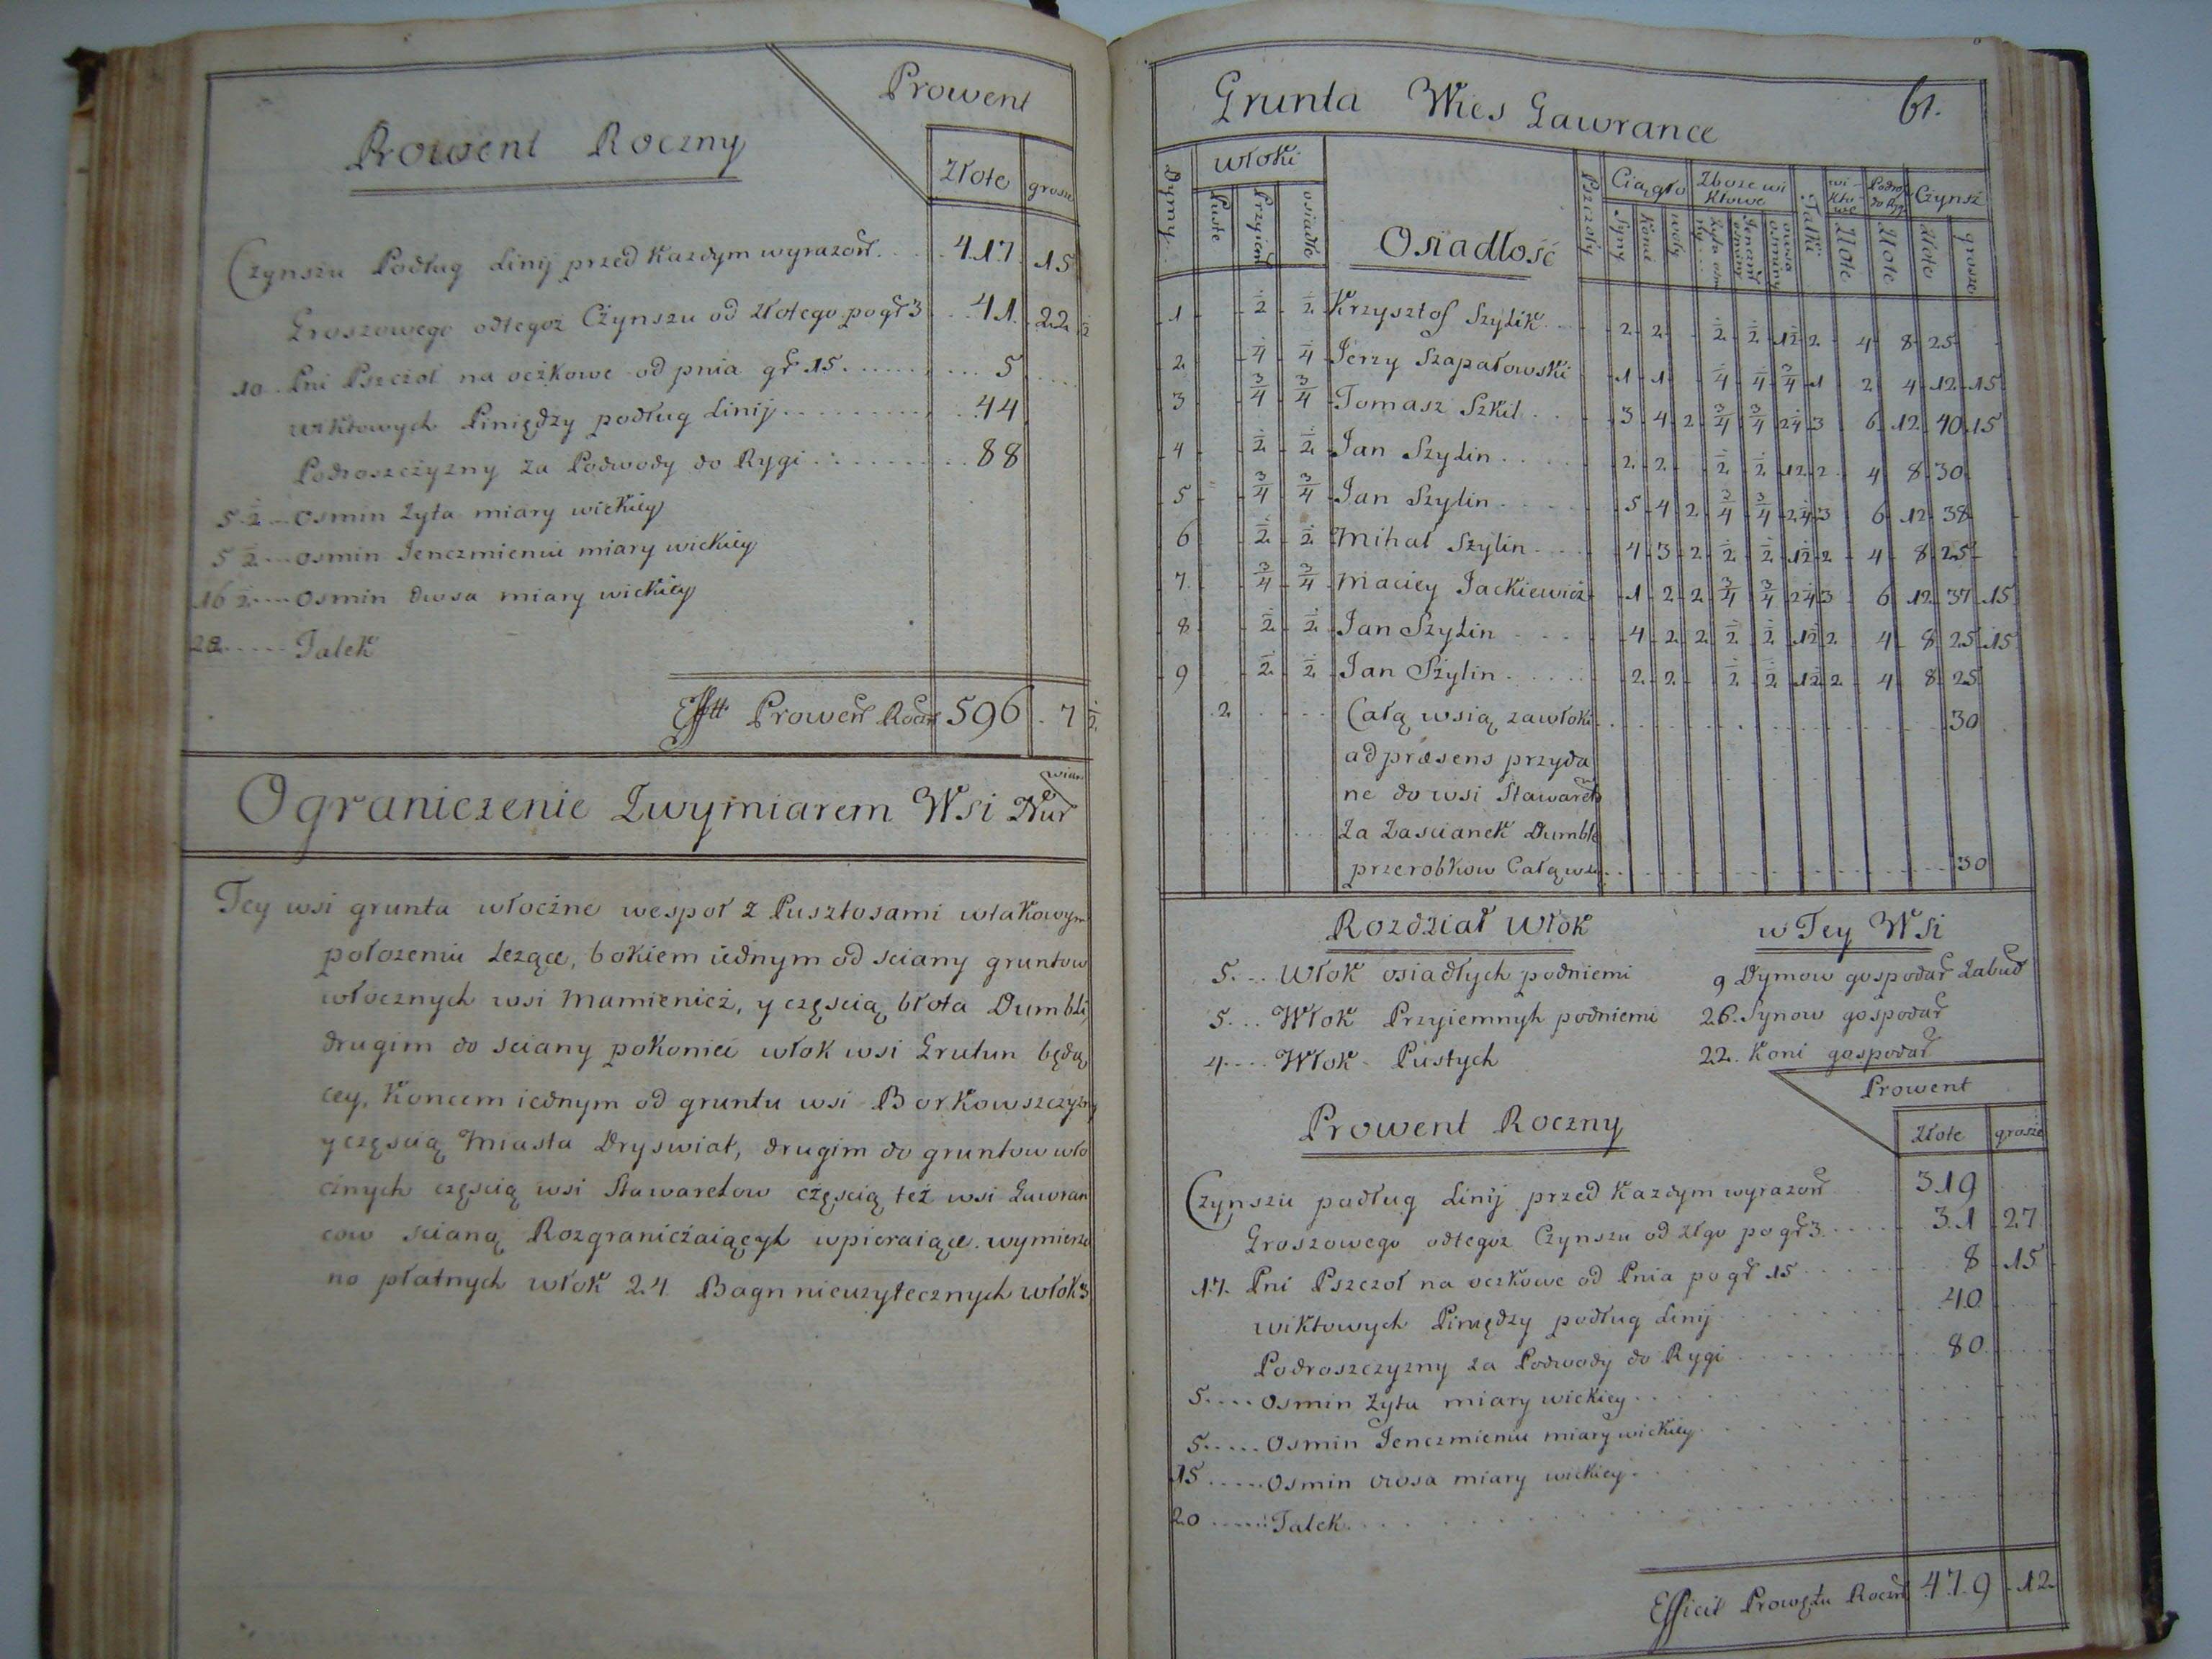 Prowent
Prowent Roczny
Złote grosze
Czynszu Podług Linij przed Kazdym wyrazoń. 417 15
Groszowego odtegoż Czynszu od złotego po gr 3 41 22 ½
10 Pni Pszczoł na oczkowe od pnia gr 15 5
wiktowych Piniędzy podług Linij 44
Podroszczyzny za Podwody do Rygi 88
5 ½ Osmin Zyta miary wickiey
5 ½ Osmin Ienczmieniu miary wickiey
16 ½ Osmin Owsa miary wickiey
22 Talek
Efftt Proweń Roczń 596 7 ½
Ograniczenie Zwymiarem Wsi Nur
wian
Tey wsi grunta włoczne wespoł z Pusztosami wtakowym
położeniu leżące, bokiem iednym od sciany gruntow
włocznych wsi Mamienicz, y częscią błota Dumbli,
drugim do sciany pokoniec włok wsi Grutun będą
cey, Koncem iednym od gruntu wsi Borkowszczyzny
y częscią Miasta Dryswiat, drugim do gruntow wło
cznych częscią wsi Stawaretow częscią też wsi Gawran
cow scianą Rozgraniczaiących wpieraiące. wymierzo
no płatnych włok 24 Bagn nieużytecznych włok 3
Grunta Wies Gawrance 61.
Dymy włoki Osiadłość Pszczoły Ciągło Zboze wi Talki wi- Podro Czynsz
kłowe kto do Ryg
we
Puste Przyiem osiadłe Syny Konie woły Zyta Ienczm owsa osminy Złote Złote Złote grosze
1 ½ ½ Krzysztof Szylik 2 2 ½ ½ 1½ 2 4 8 25
2 ¼ ¼ Ierzy Szapałowski 1 1 ¼ ¼ ¾ 1 2 4 12 15
3 ¾ ¾ Tomasz Szkil 3 4 2 ¾ ¾ 2¼ 3 6 12 40 15
4 ½ ½ Ian Szylin 2 2 ½ ½ 1½ 2 4 8 30
5 ¾ ¾ Ian Szylin 5 4 2 ¾ ¾ 2¼ 3 6 12 38
6 ½ ½ Mihał Szylin 4 3 2 ½ ½ 1½ 2 4 8 25
7 ¾ ¾ Maciey Iackiewicz 1 2 2 ¾ ¾ 2¼ 3 6 12 37 15
8 ½ ½ Ian Szylin 4 2 2 ½ ½ 1½ 2 4 8 25 15
9 ½ ½ Ian Szylin 2 2 ½ ½ 1½ 2 4 8 25
2 Całą wsią zawłoki 30
ad præsens przyda
ne do wsi Stawaret
Za Zascianek Dumble
przerobkow Całą wsią 30
Rozdział Włok w Tey Wsi
5 Włok osiadłych podniemi 9 Dymow gospodar Zabud
5 Włok Przyiemnyh podniemi 26 Synow gospodar
4 Włok Pustych 22 Koni gospodar
Prowent
Prowent Roczny
Złote grosze
Czynszu podług Linij przed Kazdym wyrazoń 319
Groszowego odtegoz Czynszu od złgo po gr 3 31 27
17 Pni Pszczoł na oczkowe od Pnia po gr 15 8 15
wiktowych Piniędzy podług Linij 40
Podroszczyzny za Podwody do Rygi 80
5 Osmin Zyta miary wickiey
5 Osmin Ienczmieniu miary wickiey
15 Osmin owsa miary wickiey
20 Talek
Efficit Prowętu Roczń 479 12